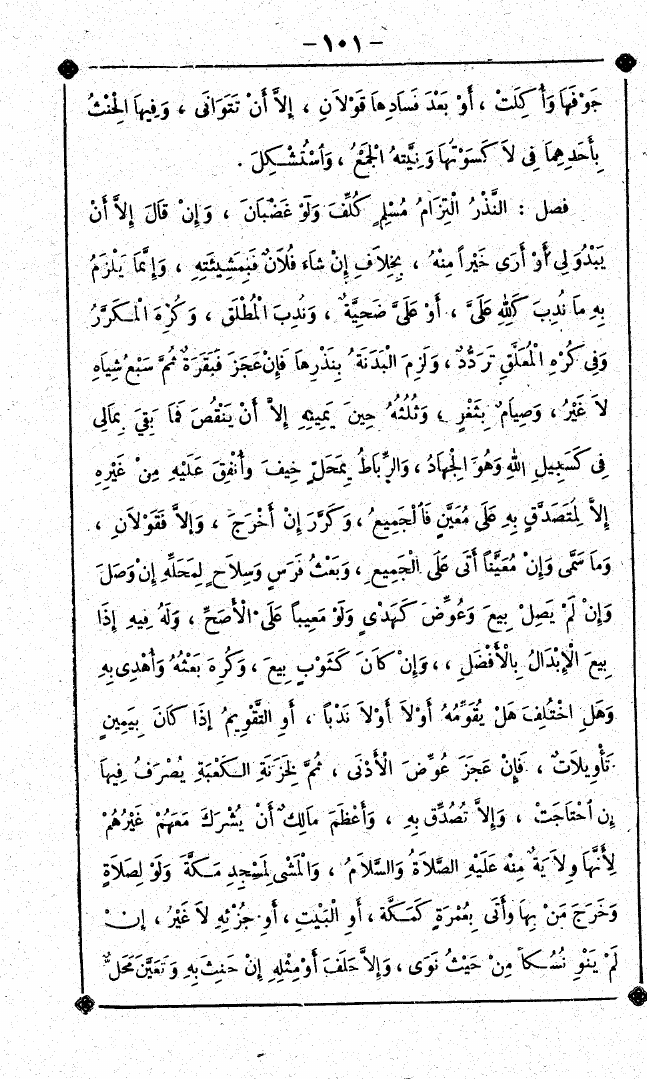 - ١٠١ -
جَوْفَهَا وَأُكِلَتْ ، أَوْ بَعْدَ فَسَادِهَا قَوْلَانِ ، إِلاَّ أَنْ تَتَوَانَى ، وَفِيهَا الْحِنْثُ
بِأَحَدِهِمَا فِى لاَ كَسَوْتُهَا وَنِيَّتُهُ الْجَمْعُ ، وَاسْتُشْكِلَ .
فصل : النَّذْرُ الْتِزَامُ مُسْلِمٍ كُلِّفَ وَلَوْ غَضْبَانَ ، وَإِنْ قَالَ إِلاَّ أَنْ
يَبْدُوَ لِى أَوْ أَرَى خَيْراً مِنْهُ ، بِخِلَافِ إِنْ شَاءَ فُلَانٌ فَبِمَشِيئَتِهِ ، وَإِنَّمَا يَلْزَمُ
بِهِ مَا نُدِبَ كَلِلّهِ عَلَىَّ ، أَوْ عَلَىَّ ضَحِيَّةٌ ، وَنُدِبَ الْمُطْلَقُ ، وَكُرِهَ الْمُكَرَّرُ
وَفِى كُرْهِ الْمُعَلَّقِ تَرَدُّدٌ ، وَلَزِمَ الْبَدَنَةُ بِنَذْرِهَا فَإِنْ عَجَزَ فَبَقَرَةٌ ثُمَّ سَبْعُ شِيَاهٍ
لاَ غَيْرُ ، وَصِيَامٌ بِثَغْرٍ ، وَثُلُثُهُ حِينَ يَمِينِهِ إِلاَّ أَنْ يَنْقُصَ فَمَا بَقِىَ بِمَالِى
فِى كَسَبِيلِ اللهِ وَهُوَ الْجِهَادُ ، وَالرِّبَاطُ بِمَحَلٍّ خِيفَ وَأُنْفِقَ عَلَيْهِ مِنْ غَيْرِهِ
إِلاَّ لِمُتَصَدَّقٍ بِهِ عَلَى مُعَيَّنٍ فَالْجَمِيعُ ، وَكَرَّرَ إِنْ أَخْرَجَ ، وَإِلاَّ فَقَوْلَانِ ،
وَمَا سَمَّى وَإِنْ مُعَيَّناً أَتَى عَلَى الْجَمِيعِ ، وَبَعْثُ فَرَسٍ وَسِلَاحٍ لِمَحَلِّهِ إِنْ وَصَلَ
وَإِنْ لَمْ يَصِلْ بِيعَ وَعُوِّضَ كَهَدْىٍ وَلَوْ مَعِيباً عَلَى الْأَصَحِّ ، وَلَهُ فِيهِ إِذَا
بِيعَ الْإِبْدَالُ بِالْأَفْضَلِ ، ، وَإِنْ كَانَ كَثَوْبٍ بِيعَ ، وَكُرِهَ بَعْثُهُ وَأُهْدِىَ بِهِ
وَهَلِ اخْتُلِفَ هَلْ يُقَوِّمُهُ أَوْلاَ أَوْلاَ نَدْباً ، أَوِ التَّقْوِيمُ إِذَا كَانَ بِيَمِينٍ
تَأْوِيلَاتٌ ، فَإِنْ عَجَزَ عُوِّضَ الْأَدْنَى ، ثُمَّ لِخَزَنَةِ الْكَعْبَةِ يُصْرَفُ فِيهَا
إِنِ احْتَاجَتْ ، وَإِلاَّ تُصُدِّقَ بِهِ ، وَأَعْظَمَ مَالِكٌ أَنْ يُشْرَكَ مَعَهُمْ غَيْرُهُمْ
لِأَنَّهَا وِلاَيَةٌ مِنْهُ عَلَيْهِ الصَّلاَةُ وَالسَّلاَمُ ، وَالْمَشْىُ لِمَسْجِدِ مَكَّةَ وَلَوْ لِصَلاَةٍ
وَخَرَجَ مَنْ بِهَا وَأَتَى بِعُمْرَةٍ كَمَكَّةَ ، أَوِ الْبَيْتِ ، أَوْ جُزْئِهِ لاَ غَيْرُ ، إِنْ
لَمْ يَنْوِ نُسُكاً مِنْ حَيْثُ نَوَى ، وَإِلاَّ حَلَفَ أَوْ مِثْلِهِ إِنْ حَنِثَ بِهِ وَتَعَيَّنَ مَحَلٌّ